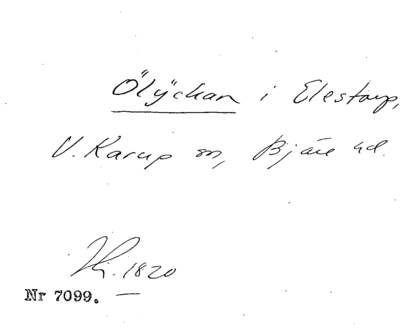 Ölyckan i Elestorp,
V. Karup sn, Bjäre hd.
1820
Nr 7099.